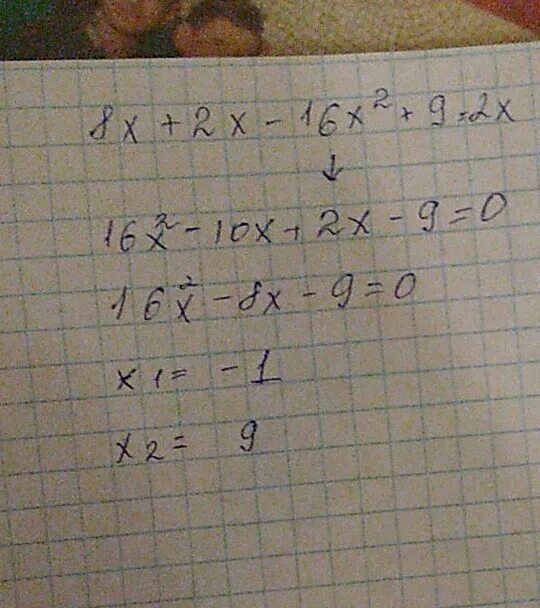 8x + 2x - 16x² + 9 = 2x
↓
16x² - 10x + 2x - 9 = 0
16x² - 8x - 9 = 0
x₁ = -1
x₂ = 9